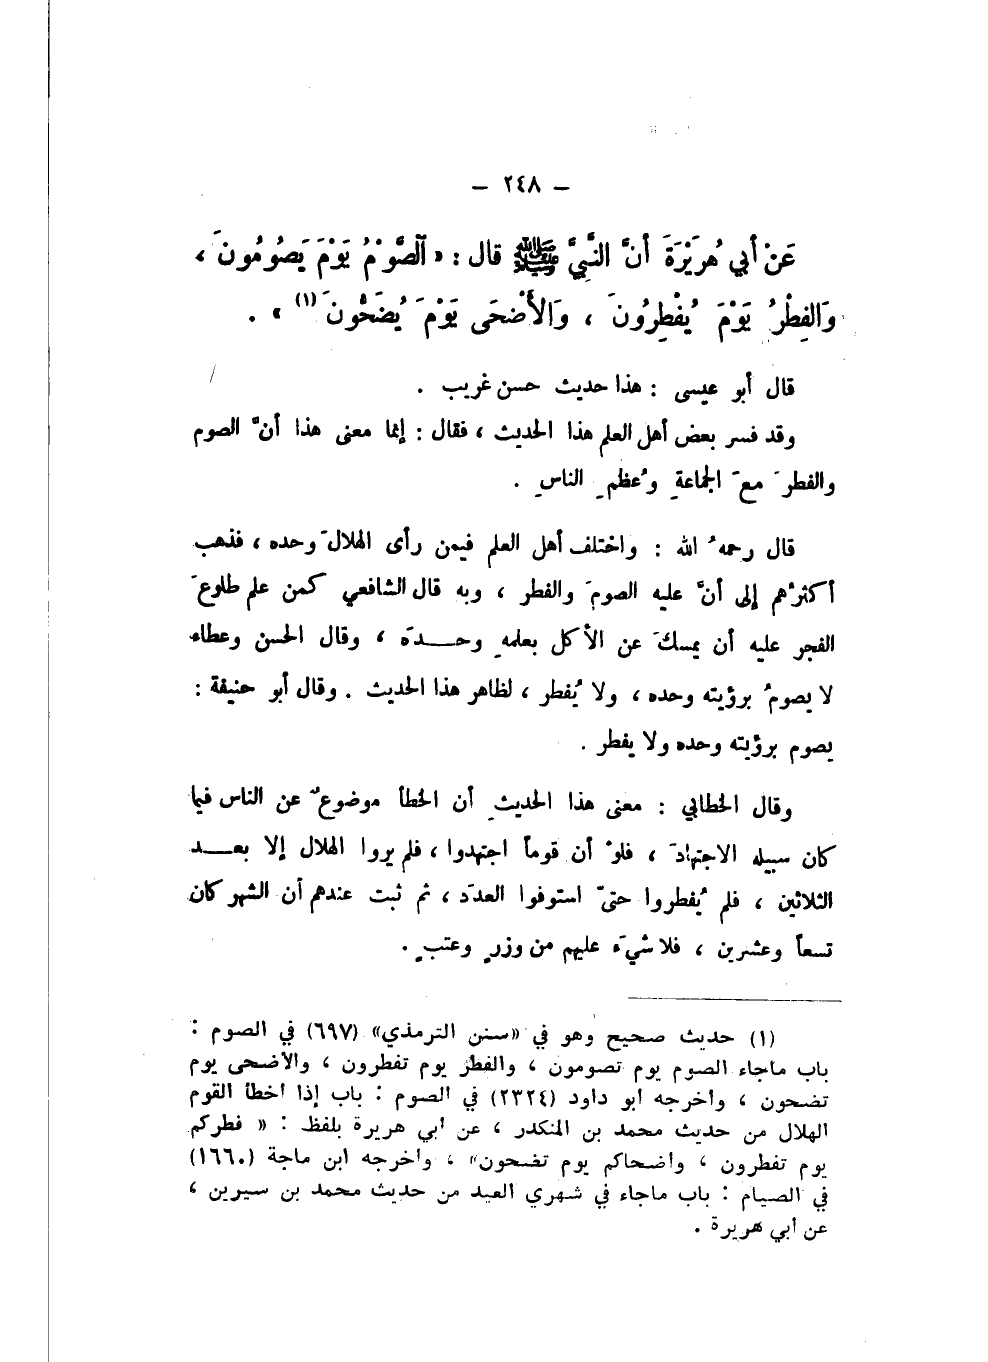 — ٢٤٨ —
عَنْ أَبي هُرَيْرَةَ أَنَّ النَّبِيَّ ﷺ قال : « اَلصَّوْمُ يَوْمَ يَصُومُونَ ،
وَالفِطْرُ يَوْمَ يُفْطِرُونَ ، وَالأَضْحَى يَوْمَ يُضَحُّونَ (١) » .
قال أبو عيسى : هذا حديث حسن غريب .
وقد فسر بعض أهل العلم هذا الحديث ، فقال : إنما معنى هذا أنَّ الصوم
والفطرَ معَ الجماعةِ وعُظمِ الناسِ .
قال رحمهُ الله : واختلف أهل العلم فيمن رأى الهلالَ وحده ، فذهب
أكثرُهم إلى أنَّ عليه الصومَ والفطر ، وبه قال الشافعي كمن علم طلوعَ
الفجر عليه أن يمسكَ عن الأكل بعلمهِ وحـــدَه ، وقال الحسن وعطاء
لا يصومُ برؤيته وحده ، ولا يُفطر ، لظاهر هذا الحديث . وقال أبو حنيفة :
يصوم برؤيته وحده ولا يفطر .
وقال الخطابي : معنى هذا الحديثِ أن الخطأ موضوعٌ عن الناس فيما
كان سبيله الاجتهادَ ، فلوْ أن قوماً اجتهدوا ، فلم يروا الهلال إلا بعـــد
الثلاثين ، فلم يُفطروا حتىّ استوفوا العدَد ، ثم ثبت عندهم أن الشهر كان
تسعاً وعشرين ، فلا شيَء عليهم من وزرٍ وعتبٍ .
(١) حديث صحيح وهو في «سنن الترمذي» (٦٩٧) في الصوم :
باب ماجاء الصوم يوم تصومون ، والفطر يوم تفطرون ، والأضحى يوم
تضحون ، وأخرجه أبو داود (٢٣٢٤) في الصوم : باب إذا أخطأ القوم
الهلال من حديث محمد بن المنكدر ، عن أبي هريرة بلفظ : « فطركم
يوم تفطرون ، وأضحاكم يوم تضحون» ، وأخرجه ابن ماجة (١٦٦٠)
في الصيام : باب ماجاء في شهري العيد من حديث محمد بن سيرين ،
عن أبي هريرة .